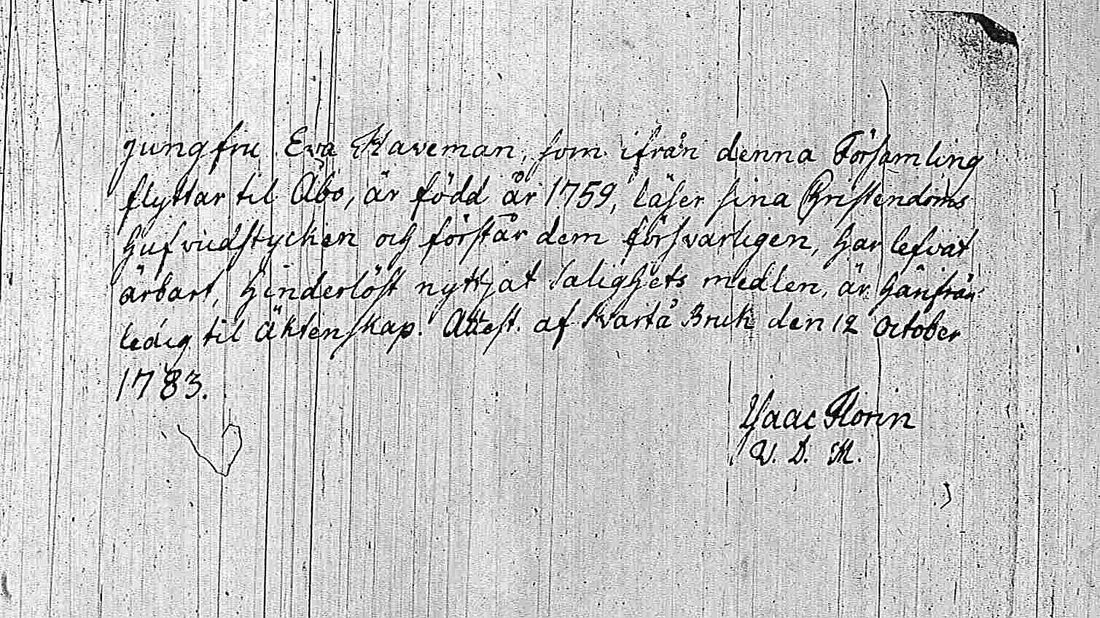 Jungfru Eva Staveman, som ifrån denna Församling
flyttar til Åbo, är född år 1759, läser sina Christendoms
hufvudstycken och förstår dem försvarligen, har lefvat
ärbart, hinderlöst nyttjat salighets medlen, är härifrån
ledig til äktenskap. Attest. af Svartå Bruk den 12 October
1783.
Isaac Florin
V. D. M.